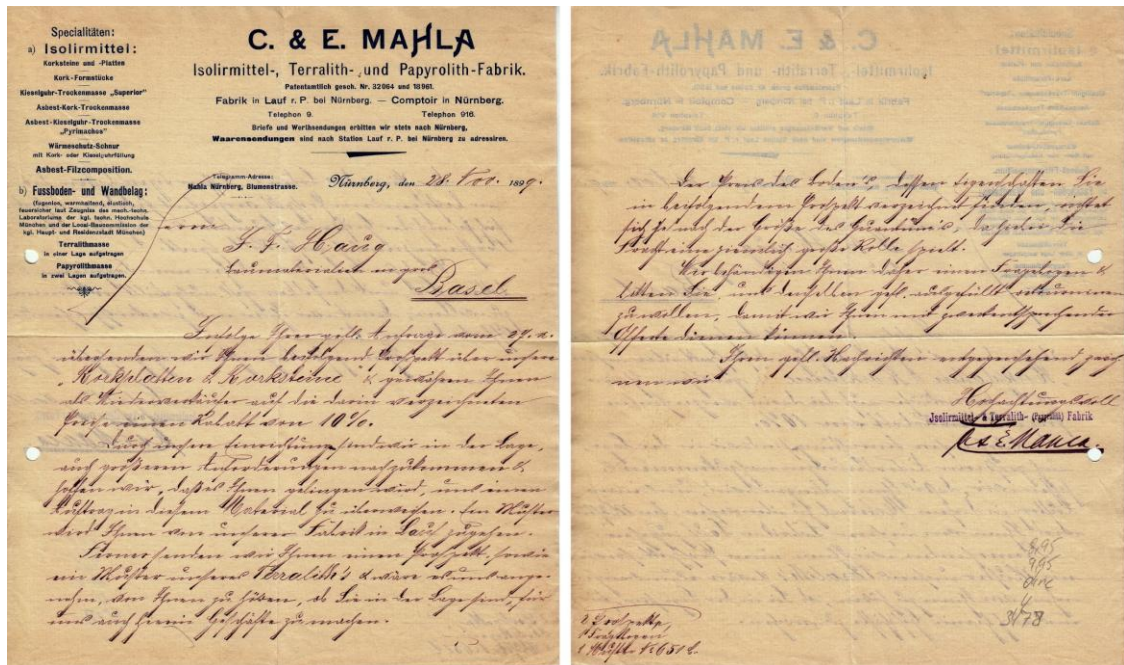 Specialitäten:
a) Isolirmittel:
Korksteine und -Platten
Kork-Formstücke
Kieselguhr-Trockenmasse „Superior"
Asbest-Kork-Trockenmasse
Asbest-Kieselguhr-Trockenmasse
„Pyrimachos"
Wärmeschutz-Schnur
mit Kork- oder Kieselguhrfüllung
Asbest-Filzcomposition.
b) Fussboden- und Wandbelag:
(fugenlos, warmhaltend, elastisch,
feuersicher laut Zeugniss des mech.-techn.
Laboratoriums der kgl. techn. Hochschule
München und der Local-Baucommission der
kgl. Haupt- und Residenzstadt München)
Terralithmasse
in einer Lage aufgetragen
Papyrolithmasse
in zwei Lagen aufgetragen.
C. & E. MAHLA
Isolirmittel-, Terralith- und Papyrolith-Fabrik.
Patentamtlich gesch. Nr. 32064 und 18961.
Fabrik in Lauf r. P. bei Nürnberg. — Comptoir in Nürnberg.
Telephon 9. Telephon 916.
Briefe und Werthsendungen erbitten wir stets nach Nürnberg,
Waarensendungen sind nach Station Lauf r. P. bei Nürnberg zu adressiren.
Telegramm-Adresse:
Mahla Nürnberg, Blumenstrasse.
Nürnberg, den 28. Nov. 1899.
Herrn
J. F. Haug
Baumaterialien en gros
Basel
Infolge Ihrer gefl. Anfrage vom 27. a.
übersenden wir Ihnen beifolgend Prospekt über unsere
„Korkplatten & Korksteine" & gewähren Ihnen
als Wiederverkäufer auf die darin verzeichneten
Preise einen Rabatt von 10%.
Durch unsere Einrichtung sind wir in der Lage,
auch größeren Anforderungen nachzukommen &
hoffen wir, daß es Ihnen gelingen wird, uns einen
Auftrag in diesem Material zu überweisen. Ein Muster
wird Ihnen von unserer Fabrik in Lauf zugehen.
Ferner senden wir Ihnen einen Prospekt, sowie
ein Muster unseres Terralith's & wäre es uns ange-
nehm, von Ihnen zu hören, ob Sie in der Lage sind, für
uns auch hierin Geschäfte zu machen.
Der Preis des Boden's, dessen Eigenschaften Sie
in beifolgendem Prospekt verzeichnet finden, richtet
sich je nach der Größe des Quantum's, da hierbei die
Fracht eine ziemlich große Rolle spielt.
Wir behändigen Ihnen daher einen Fragebogen &
bitten Sie, uns denselben gefl. ausgefüllt retournieren
zu wollen, damit wir Ihnen mit zweckentsprechender
Offerte dienen können.
Ihren gefl. Nachrichten entgegensehend zeich-
nen wir
Hochachtungsvoll
Isolirmittel- & Terralith- (Papyrolith) Fabrik
C & E. Mahla.
2 Prospekte,
1 Fragebogen
1 Muster
8,95
9,95
3478